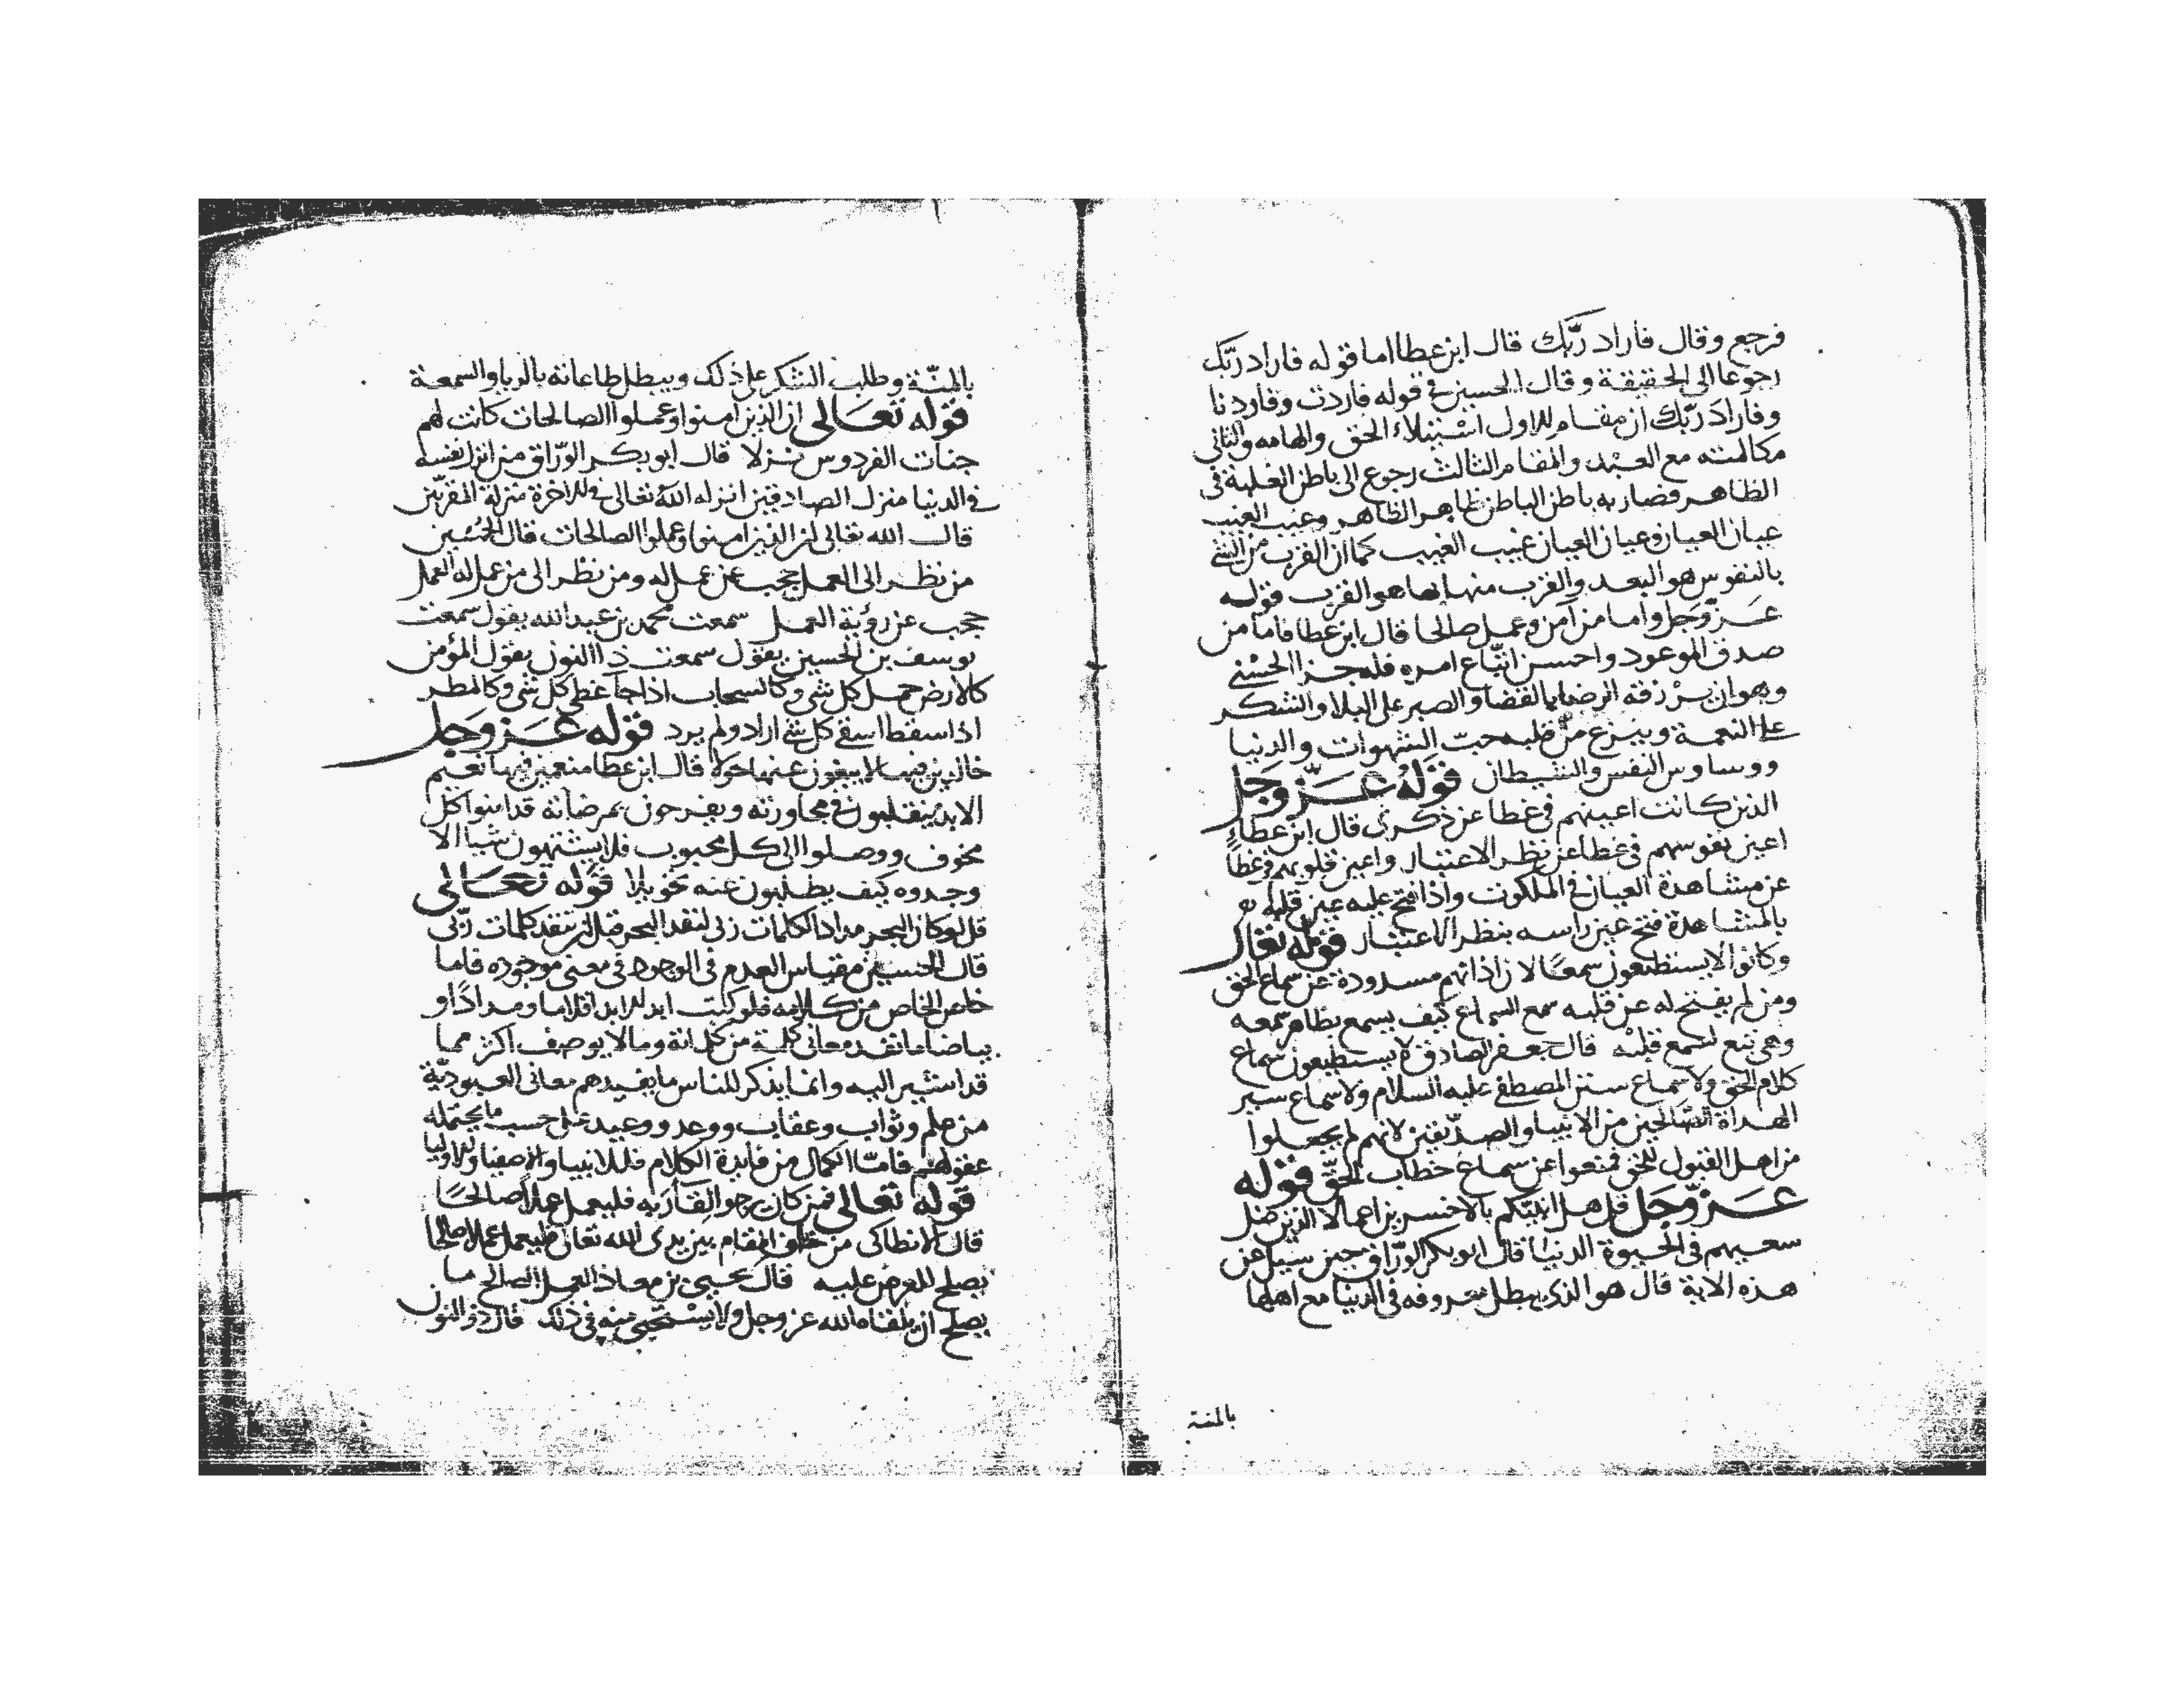 فرجع وقال فاراد ربّك قال ابن عطا اما قوله فاراد ربّك
رجوعا الى الحقيقة وقال الحسين في قوله فاردت وفاردنا
وفاراد ربّك ان مقام الاول استيلاء الحق والهامه والثاني
مكالمته مع العبد والمقام الثالث رجوع الى باطن الغلبة في
الظاهر فصار به باطن الباطن ظاهر الظاهر وغيب الغيب
عيان العيان وعيان العيان غيب الغيب كما ان القرب من الشي
بالنفوس هو البعد والقرب منها بها هو القرب قوله
عزّ وجل واما من آمن وعمل صالحا قال ابن عطا فاما من
صدق الموعود واحسن اتّباع امره فله جزا الحسنى
وهو ان يرزقه الرضا بالقضا والصبر على البلا والشكر
على النعمة وينزع من قلبه حبّ الشهوات والدنيا
ووساوس النفس والشيطان قوله عزّ وجل
الذين كانت اعينهم في غطا عن ذكري قال ابن عطاء
اعين نفوسهم في غطا عن نظر الاعتبار واعين قلوبهم في غطا
عن مشاهدة العيان في الملكوت واذا فتح عليه عين قلبه
بالمشاهدة فتح عين راسه بنظر الاعتبار قوله تعالى
وكانوا لا يستطيعون سمعا لان اذانهم مسدودة عن سماع الحق
ومن لم يفتح له عن قلبه سمع السماع كيف يسمع بظاهر سمعه
وهي تبع لسمع قلبه قال جعفر الصادق لا يستطيعون سماع
كلام الحق ولا سماع سنن المصطفى عليه السلام ولا سماع سير
الهداة الصالحين من الانبيا والصدّيقين لانهم لم يجعلوا
من اهل القبول للحق فمنعوا عن سماع خطاب الحقّ قوله
عزّ وجل قل هل انبئكم بالاخسرين اعمالا الذين ضل
سعيهم في الحيوة الدنيا قال ابو بكر الورّاق حين سيل عن
هذه الاية قال هو الذي يبطل معروفه في الدنيا مع اهلها
بالمنة
بالمنّة وطلب الشكر على ذلك ويبطل طاعاته بالريا والسمعة
قوله تعالى ان الذين امنوا وعملوا الصالحات كانت لهم
جنات الفردوس نزلا قال ابو بكر الورّاق من انزل نفسه
في الدنيا منزل الصادقين انزله الله تعالى في الاخرة منزلة المقرّبين
قال الله تعالى ان الذين امنوا وعملوا الصالحات قال الحسين
من نظر الى العمل حجب عن عمل له ومن نظر الى من عمل له العمل
حجب عن رؤية العمل سمعت محمد بن عبد الله يقول سمعت
يوسف بن الحسين يقول سمعت ذا النون يقول المؤمن
كالارض حمل كل شي وكالسحاب اذا جا غطى كل شي وكالمطر
اذا سقط اسقى كل شي اراد ولم يرد قوله عزّ وجل
خالدين فيها لا يبغون عنها حولا قال ابن عطا منعمين فيها نعيم
الابد يتقلبون في مجاورته ويفرحون بمرضاته قد امنوا كل
مخوف ووصلوا الى كل محبوب فلا يشتهون شيا الا
وجدوه كيف يطلبون عنه تحويلا قوله تعالى
قل لو كان البحر مدادا لكلمات ربي لنفد البحر قبل ان تنفد كلمات ربّي
قال الحسين مقياس العدم في الوجود في معنى موجوده فاما
خاص الخاص من كلامه فلو كتبت ابد الابد اقلاما ومدادا و
بياضا ما نفد معاني كلمة من كلماته وما لا يوصف اكثر مما
قد اشير اليه وانما يذكر للناس ما يفيدهم معاني العبوديّة
من علم وثواب وعقاب ووعد ووعيد على حسب ما يحتمله
عقولهم فامّا الكمال من فايدة الكلام فللانبيا والاصفيا والاوليا
قوله تعالى فمن كان يرجوا لقا ربه فليعمل عملا صالحًا
قال الانطاكي من خاف المقام بين يدي الله تعالى فليعمل عملا صالحا
يصلح للعرض عليه قال يحيى بن معاذ العمل الصالح ما
يصلح ان يلقا به الله عز وجل ولا يستحيي منه في ذلك قال ذو النون